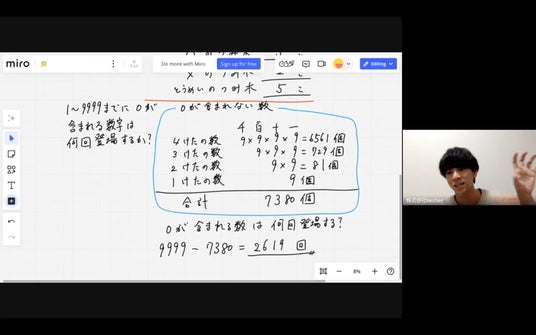 miro
Do more with Miro
Sign up for free
Editing
とうめいのつみ木 5こ
1〜9999までに 0が
含まれる数字は
何回登場するか?
0が含まれない数
千 百 十 一
4けたの数 9×9×9×9=6561個
3けたの数 9×9×9=729個
2けたの数 9×9=81個
1けたの数 9個
合計 7380個
0が含まれる数は何回登場する?
9999-7380=2619回
8%